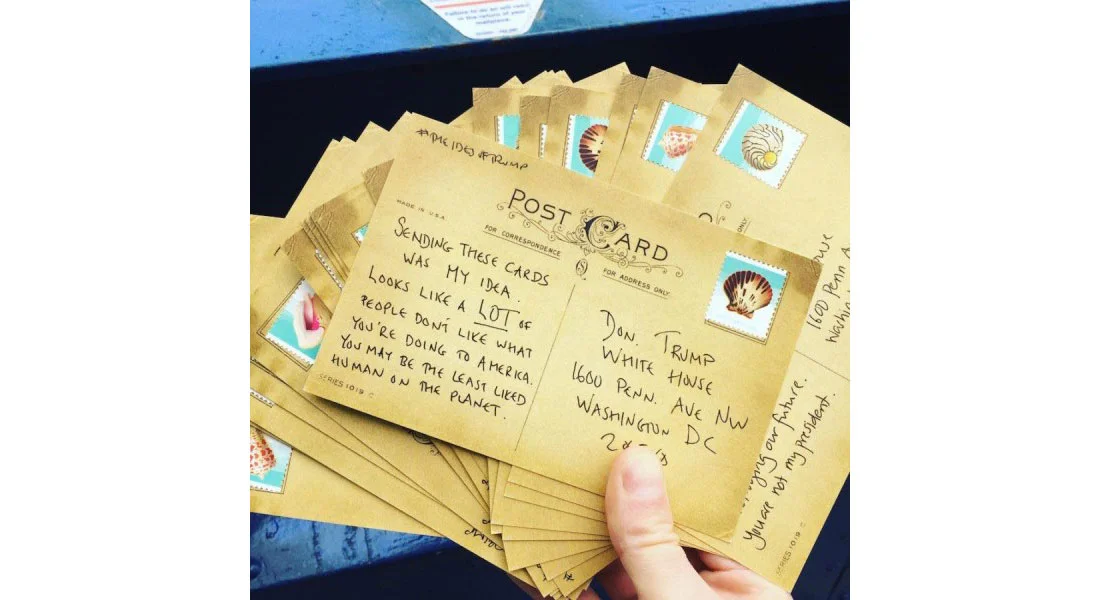 Failure to do so will result
in the return of your
mailpiece.
#THE IDES #TRUMP
POST CARD
MADE IN U.S.A.
FOR CORRESPONDENCE
FOR ADDRESS ONLY
SENDING THESE CARDS
WAS MY IDEA.
LOOKS LIKE A LOT OF
PEOPLE DON'T LIKE WHAT
YOU'RE DOING TO AMERICA.
YOU MAY BE THE LEAST LIKED
HUMAN ON THE PLANET.
SERIES 1019 C
DON. TRUMP
WHITE HOUSE
1600 PENN. AVE NW
WASHINGTON DC
ONLY
1600 Penn A
our future.
You are not my president.
SERIES 1019 C